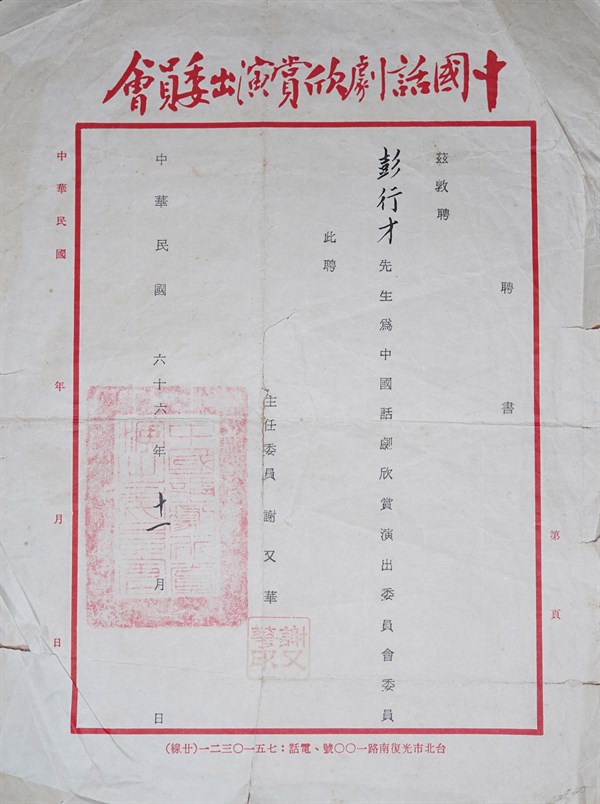 中國話劇欣賞演出委員會
聘書
茲敦聘
彭行才先生為中國話劇欣賞演出委員會委員
此聘
主任委員 謝又華
謝又華印
中華民國 六十六年 十一月 日
中國話劇欣賞演出委員會
中華民國 年 月 日
第 頁
台北市光復南路一〇〇號、電話：七五一〇三二一(廿線)